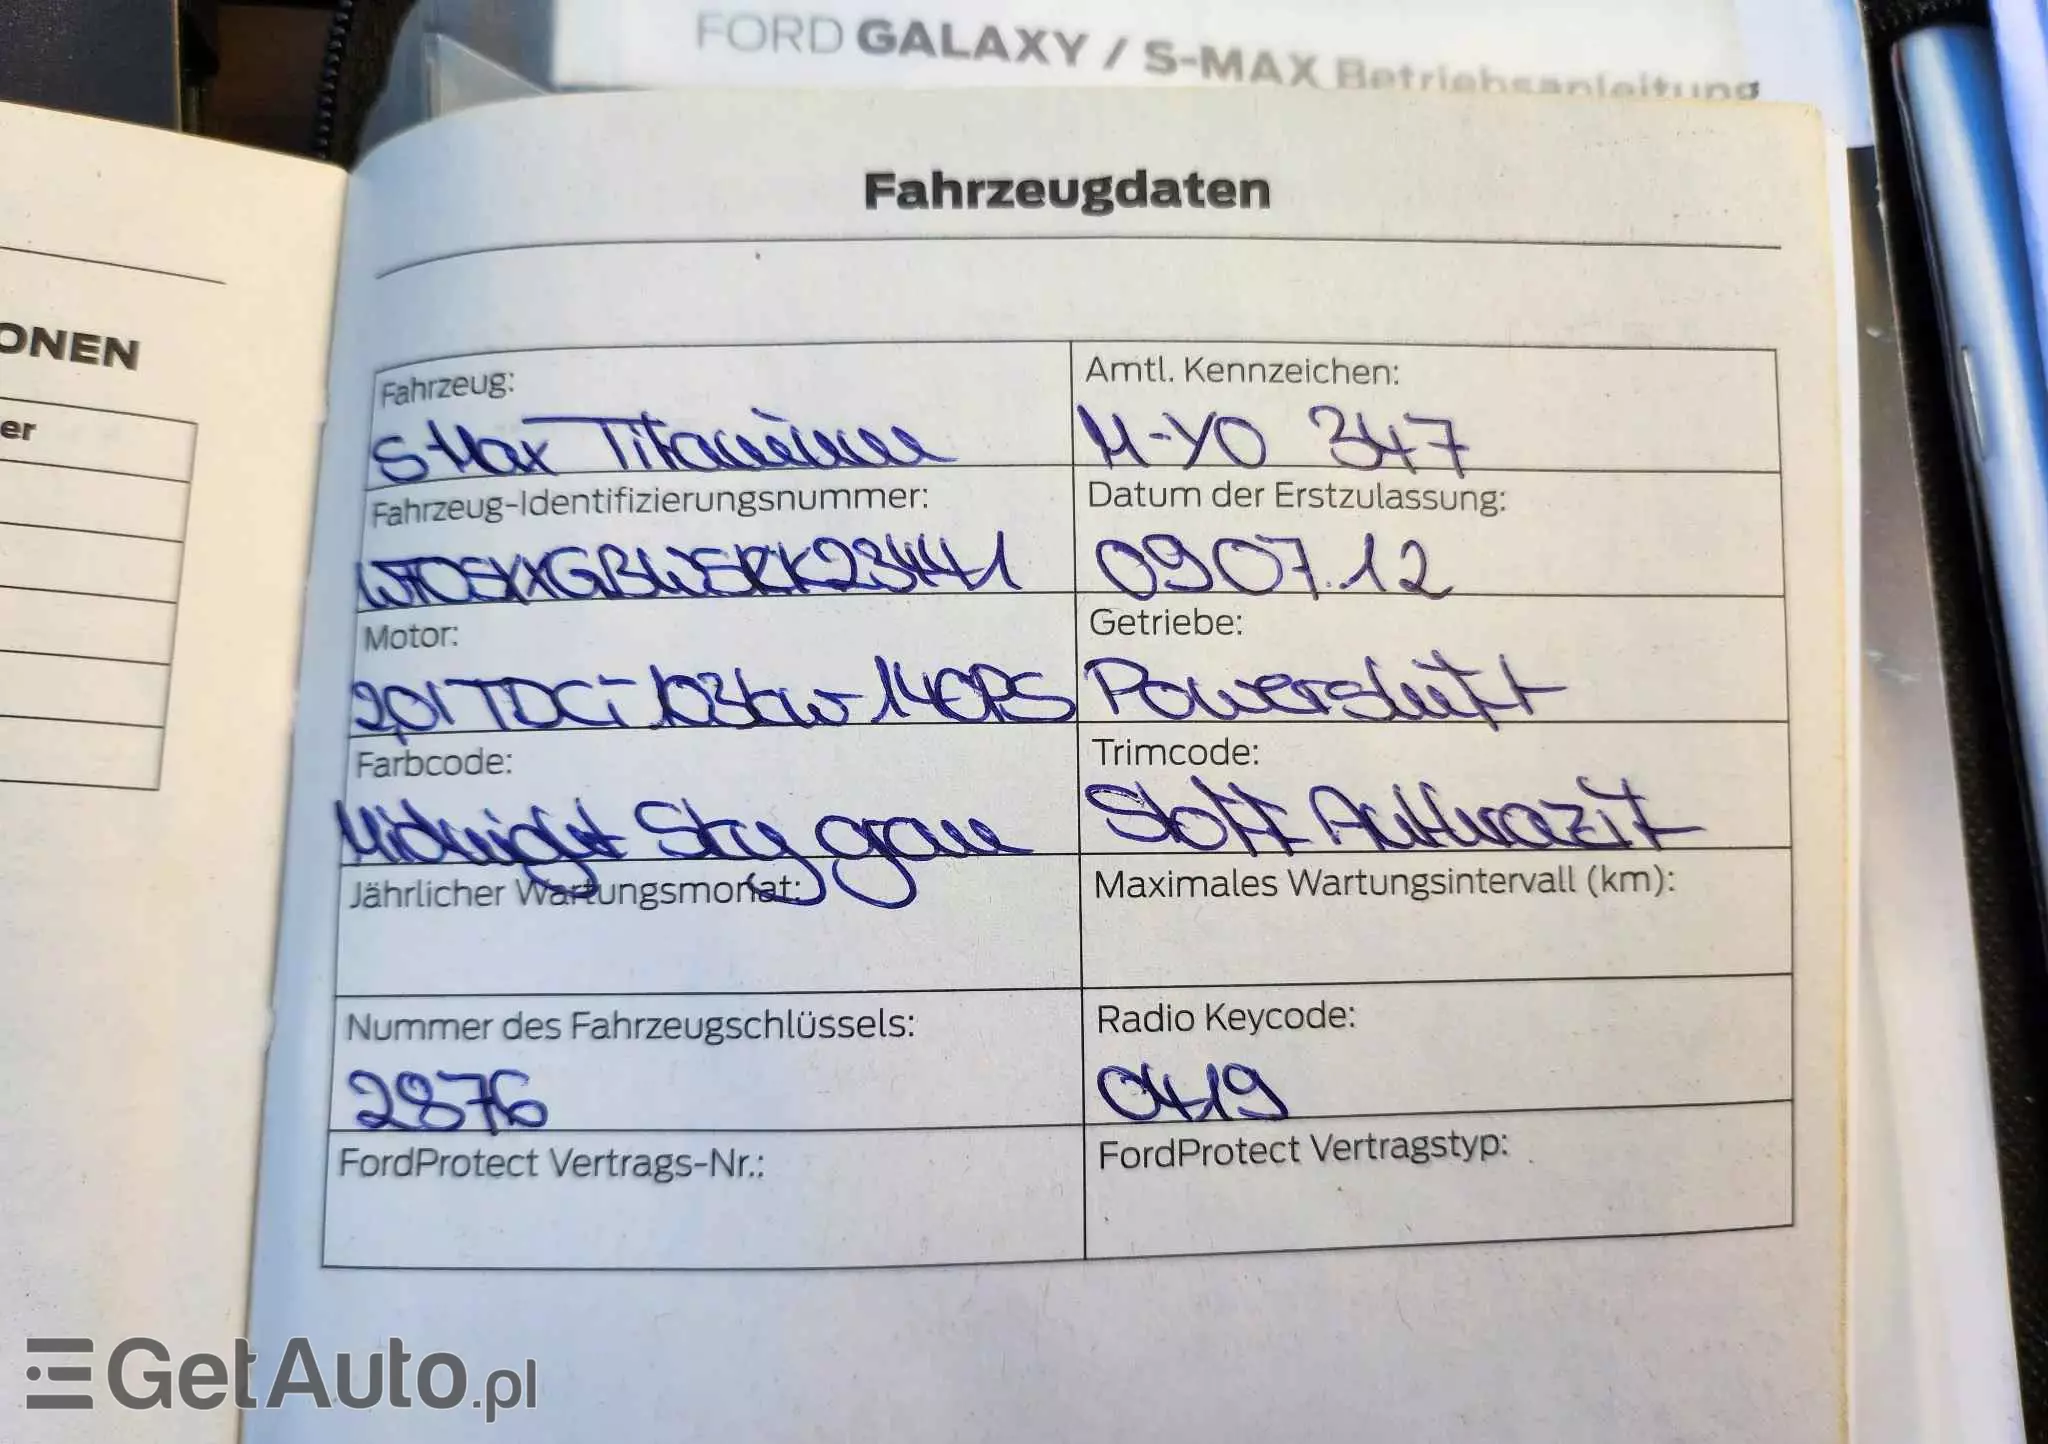 FORD GALAXY / S-MAX Betriebsanleitung
ONEN
er
Fahrzeugdaten
Fahrzeug:
S-Max Titanium
Amtl. Kennzeichen:
M-YO 347
Fahrzeug-Identifizierungsnummer:
WF0SXXGBWSCK23441
Datum der Erstzulassung:
09.07.12
Motor:
2,0l TDCi-103kw-140PS
Getriebe:
Powershift
Farbcode:
Midnight Sky grau
Trimcode:
Stoff Anthrazit
Jährlicher Wartungsmonat:
Maximales Wartungsintervall (km):
Nummer des Fahrzeugschlüssels:
2876
Radio Keycode:
0419
FordProtect Vertrags-Nr.:
FordProtect Vertragstyp:
GetAuto.pl